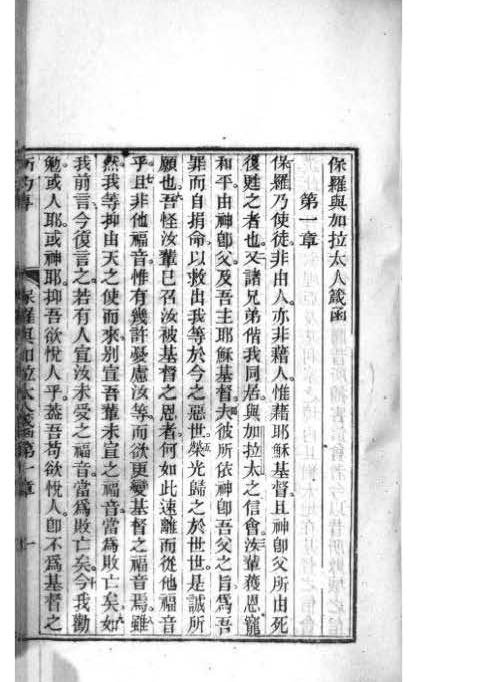 保羅與加拉太人箴函
第一章
保羅乃使徒非由人亦非藉人惟藉耶穌基督且神卽父所由死
復甦之者也又諸兄弟偕我同居與加拉太之信會汝輩獲恩寵
和平由神卽父及吾主耶穌基督夫彼所依神卽吾父之旨爲吾
罪而自捐命以救出我等於今之惡世榮光歸之於世世是誠所
願也吾怪汝輩已召汝被基督之恩者何如此速離而從他福音
乎且非他福音惟有幾許憂慮汝等而欲更變基督之福音焉雖
然我等抑由天之使而來别宣吾輩未宣之福音當爲敗亡矣如
我前言今復言之若有人宣汝未受之福音當爲敗亡矣今我勸
勉或人耶或神耶抑吾欲悅人乎蓋吾苟欲悅人卽不爲基督之
保羅與加拉太人箴函第一章 一